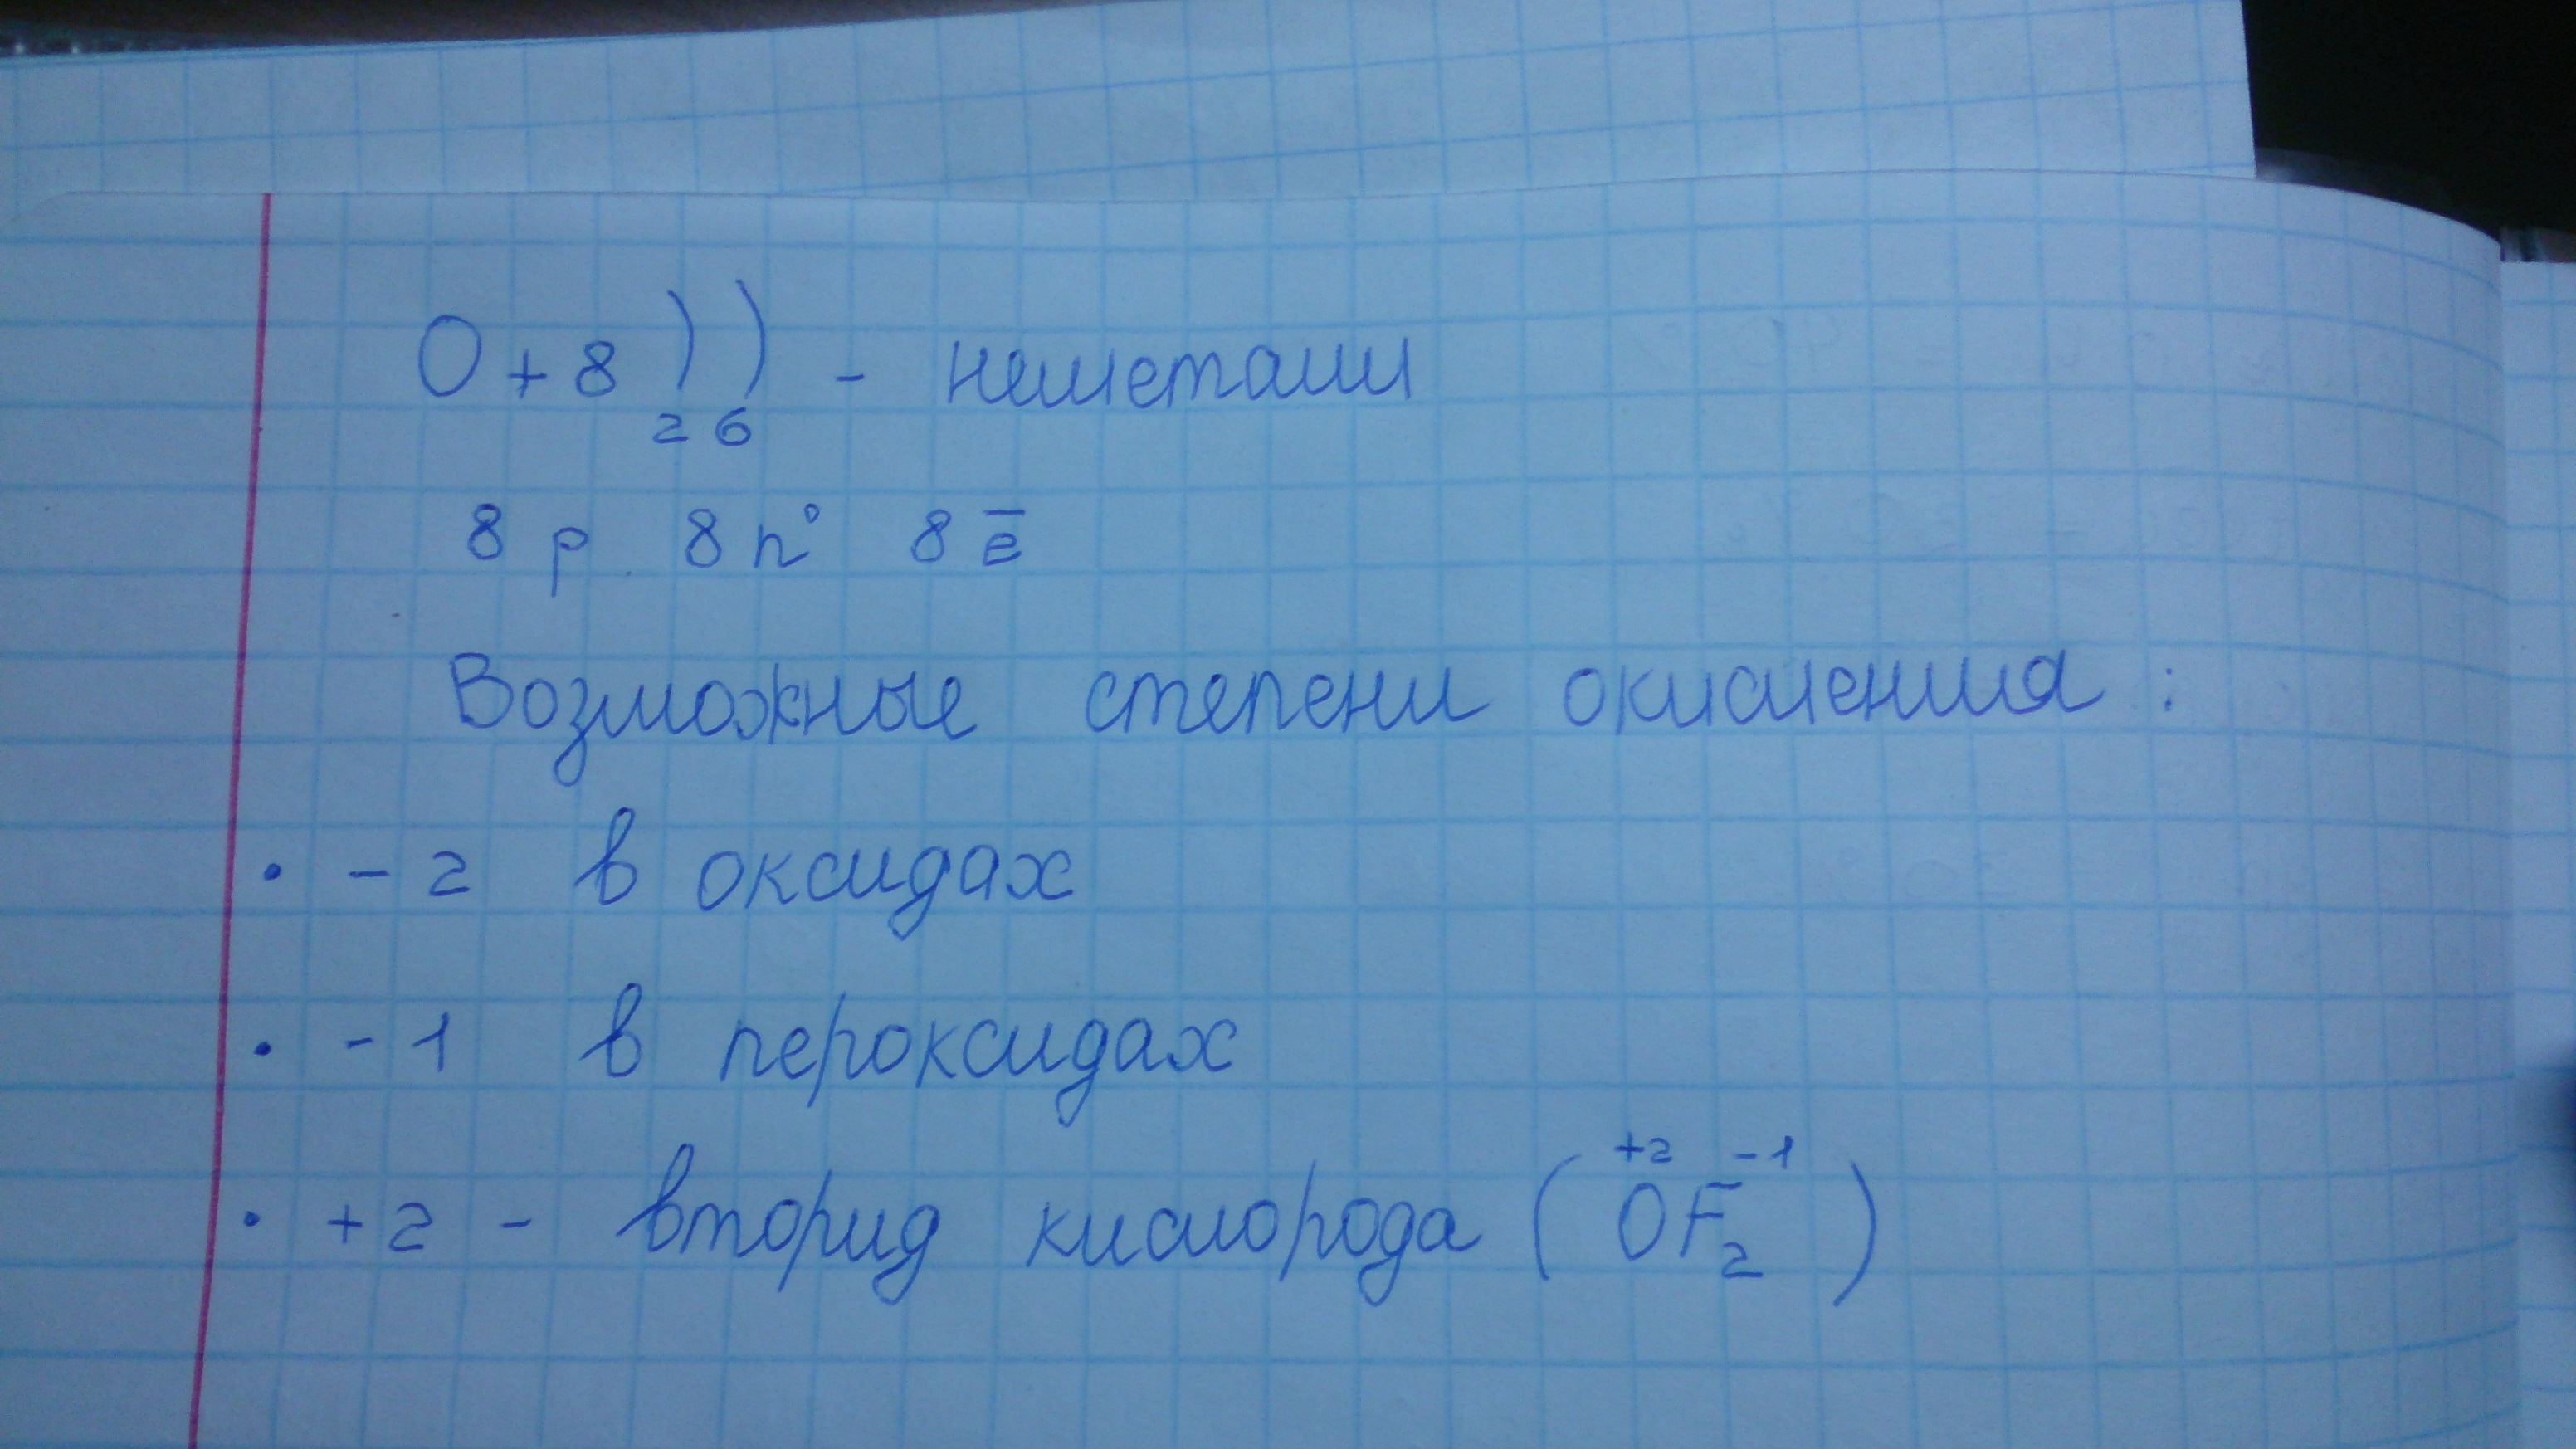 O + 8 ) ) - неметалл
2 6
8 p 8 n° 8 ē
Возможные степени окисления :
• - 2 в оксидах
• - 1 в пероксидах
+2 -1
• + 2 - вторид кислорода ( OF₂ )